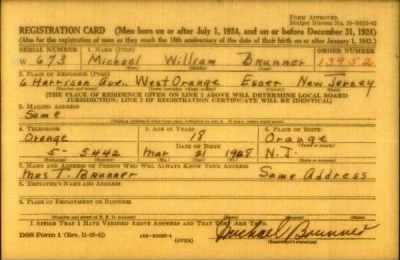 Form Approved
REGISTRATION CARD (Men born on or after July 1, 1924, and on or before December 31, 1924)
(Also for the registration of men as they reach the 18th anniversary of the date of their birth on or after January 1, 1943.)
SERIAL NUMBER 1. NAME (Print) ORDER NUMBER
W 673 Michael William Brunner 13952
2. PLACE OF RESIDENCE (Print)
6 Harrison Ave. West Orange Essex New Jersey
[THE PLACE OF RESIDENCE GIVEN ON LINE 2 ABOVE WILL DETERMINE LOCAL BOARD
JURISDICTION; LINE 2 OF REGISTRATION CERTIFICATE WILL BE IDENTICAL]
3. MAILING ADDRESS
Same
4. TELEPHONE 5. AGE IN YEARS 6. PLACE OF BIRTH
Orange 18 Orange
DATE OF BIRTH
5- 5442 Mar 21 N.J.
7. NAME AND ADDRESS OF PERSON WHO WILL ALWAYS KNOW YOUR ADDRESS
Mrs T. Brunner Same Address
8. EMPLOYER'S NAME AND ADDRESS
9. PLACE OF EMPLOYMENT OR BUSINESS
I AFFIRM THAT I HAVE VERIFIED ABOVE ANSWERS AND THAT THEY ARE TRUE.
DSS Form 1 (OVER) Michael Brunner